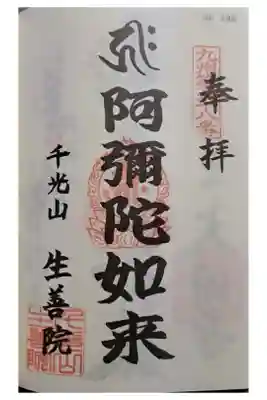 奉拝
阿彌陀如来
千光山 生善院